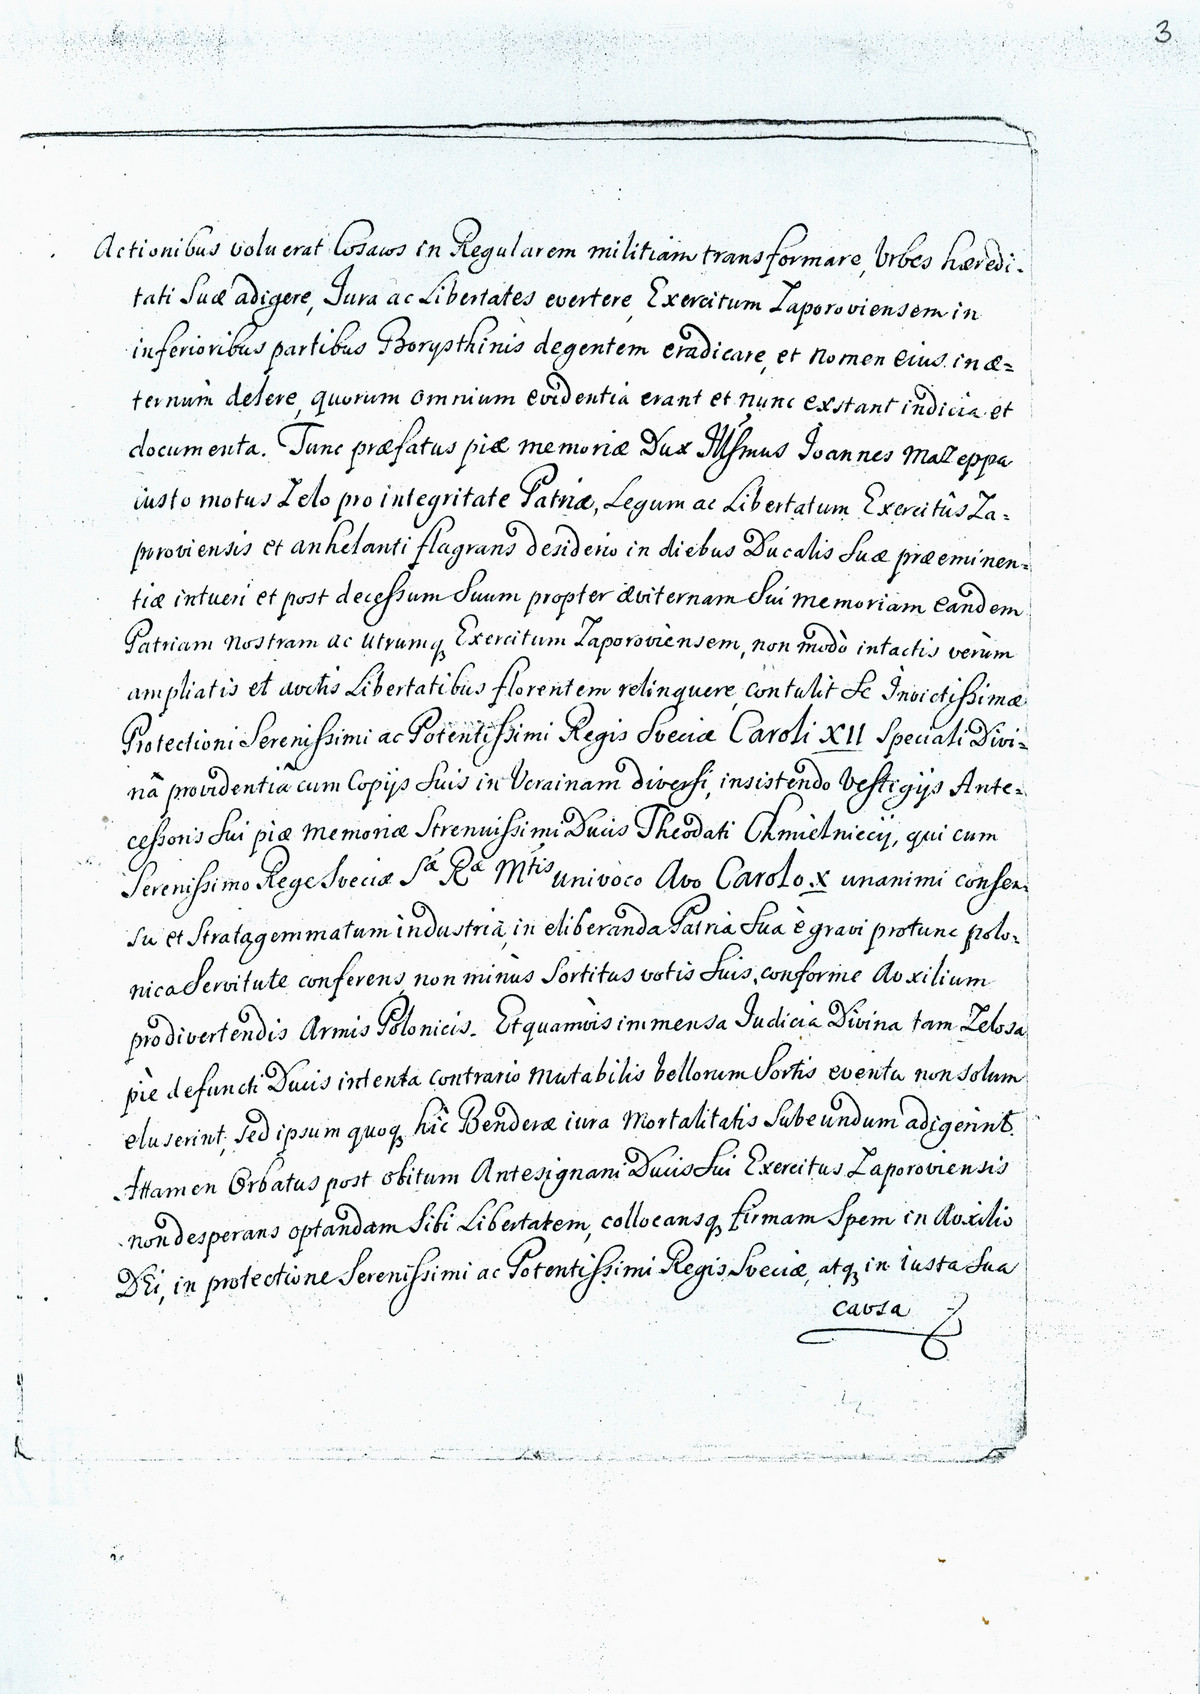 3
Actionibus voluerat Cosacos in Regularem militiam transformare, Vrbes hæredi-
tati Suæ adigere, Jura ac Libertates evertere, Exercitum Zaporoviensem in
inferioribus partibus Borysthinis degentem eradicare, et nomen eius in æ=
ternum delere, quorum omnium evidentia erant et nunc exstant indicia et
documenta. Tunc præfatus piæ memoriæ Dux Illsmus Joannes Mazeppa
iusto motus Zelo pro integritate Patriæ, Legum ac Libertatum Exercitûs Za=
poroviensis et anhelanti flagrans desiderio in diebus Ducalis Suæ præeminen=
tiæ intueri et post decessum Suum propter æviternam Sui memoriam eandem
Patriam nostram ac utrumq Exercitum Zaporoviensem, non modò intactis verùm
ampliatis et auctis Libertatibus florentem relinquere, contulit se Invictissimæ
Protectioni Serenissimi ac Potentissimi Regis Sveciæ Caroli XII Speciali Divi=
nâ providentiâ cum Copijs Suis in Vcrainam diversi, insistendo Vestigijs Ante=
cessoris Sui piæ memoriæ Strenuissimi Ducis Theodati Chmielniecij, qui cum
Serenissimo Rege Sveciæ Sæ Ræ Mtis univoco Avo Carolo X unanimi consen=
su et Stratagemmatum industriâ, in eliberanda Patria Sua è gravi protunc polo=
nica Servitute conferens, non minùs Sortitus votis Suis, conforme Auxilium
pro divertendis Armis Polonicis. Et quamvis immensa Judicia Divina tam Zelosa
piè defuncti Ducis intenta contrario mutabilis bellorum Sortis eventu non solum
eluserint, sed ipsum quoq hîc Benderæ iura mortalitatis Subeundum adigerint.
Attamen Orbatus post obitum Antesignani Ducis Sui Exercitus Zaporoviensis
non desperans optandam Sibi Libertatem, collocansq firmam Spem in Auxilio
DEi, in protectione Serenissimi ac Potentissimi Regis Sveciæ, atq in iusta Sua
causa